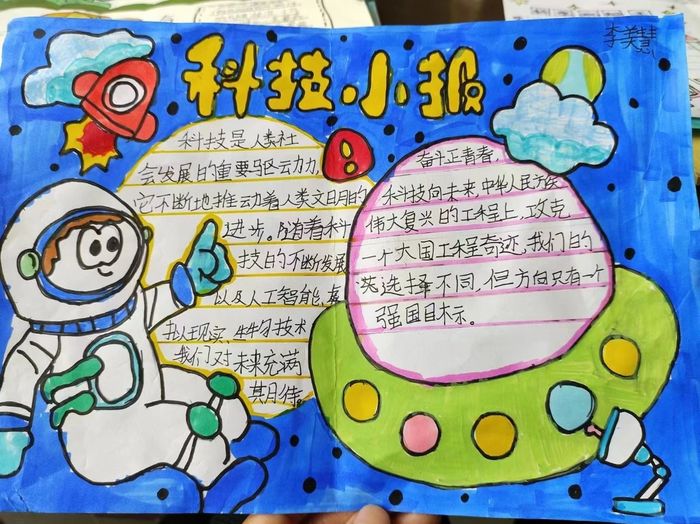 科技小报
李美慧
科技是人类社
会发展的重要驱动力,
它不断地推动着人类文明的
进步。随着科
技的不断发展
以及人工智能、虚
拟现实、生物技术
我们对未来充满
期待。
奋斗正青春,
科技向未来,中华人民方族
伟大复兴的工程上,攻克
一个大国工程奇迹,我们的
类选择不同,但方向只有一个
强国目标。